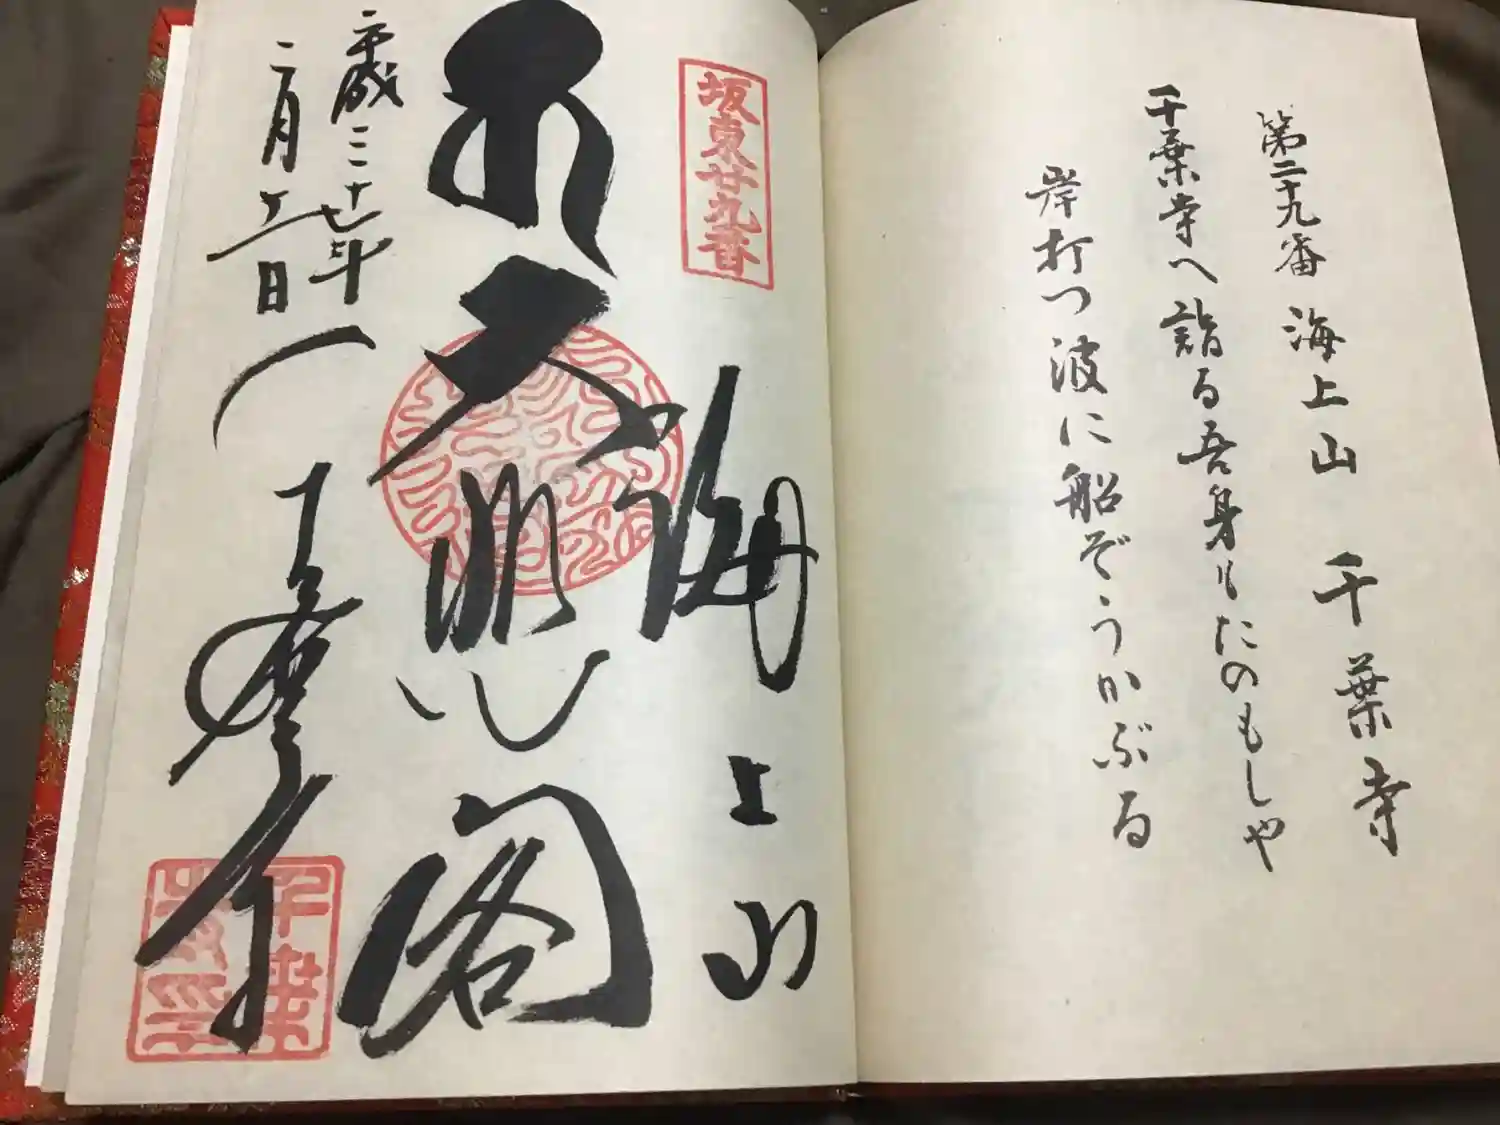 第二十九番 海上山 千葉寺
千葉寺へ詣る吾身もたのもしや
岸打つ波に船ぞうかぶる
坂東廿九番
海上山
大悲閣
千葉寺
平成二十七年
二月
日